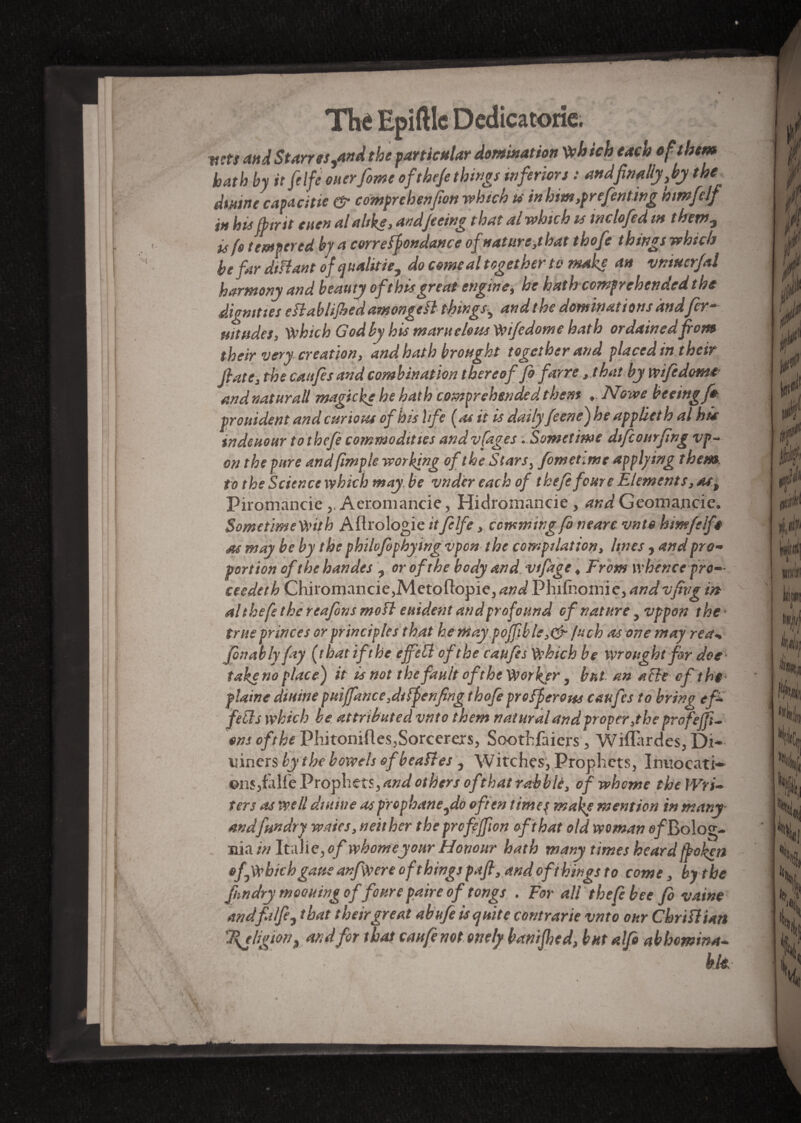 The Epiſtle Dedicatorie.
nets and Starres, and the particular domination which each of them
hath by it ſelfe ouer ſome of theſe things inferiors : and finally, by the
diuine capacitie & comprehenſion which is in him, preſenting himſelf
in his ſpirit euen al alike, and ſeeing that al which is incloſed in them,
is ſo tempered by a correſpondance of nature, that thoſe things which
be far diſtant of qualitie, do come al together to make an vniuerſal
harmony and beauty of this great engine, he hath comprehended the
dignities eſtabliſhed amongeſt things, and the dominations and ſer-
uitudes, which God by his maruelous wiſedome hath ordained from
their very creation, and hath brought together and placed in their
ſtate, the cauſes and combination thereof ſo farre, that by wiſedome
and naturall magicke he hath comprehended them. Nowe beeing ſo
prouident and curious of his life (as it is daily ſeene) he applieth al his
indeuour to theſe commodities and vſages. Sometime diſcourſing vp-
on the pure and ſimple working of the Stars, ſometime applying them
to the Science which may be vnder each of theſe foure Elements, as,
Piromancie, Aeromancie, Hidromancie, and Geomancie.
Sometime with Aſtrologie it ſelfe, comming ſo neare vnto himſelfe
as may be by the philoſophying vpon the compilation, lines, and pro-
portion of the handes, or of the body and viſage. From whence pro-
ceedeth Chiromancie, Metoſtopie, and Phiſnomie, and vſing in
al theſe the reaſons moſt euident and profound of nature, vppon the
true princes or principles that he may poſſible, & ſuch as one may rea-
ſonably ſay (that if the effect of the cauſes which be wrought for doe
take no place) it is not the fault of the Worker, but an acte of the
plaine diuine puiſſance, diſpenſing thoſe proſperous cauſes to bring ef-
fects which be attributed vnto them natural and proper, the profeſſi-
ons of the Phitoniſtes, Sorcerers, Soothſaiers, Wiſſardes, Di-
uiners by the bowels of beaſtes, Witches, Prophets, Inuocati-
ons, falſe Prophets, and others of that rabble, of whome the Wri-
ters as well diuine as prophane, do often times make mention in many
and ſundry waies, neither the profeſſion of that old woman of Bolog-
nia in Italie, of whome your Honour hath many times heard ſpoken
of, which gaue anſwere of things paſt, and of things to come, by the
ſundry moouing of foure paire of tongs. For all theſe bee ſo vaine
and falſe, that their great abuſe is quite contrarie vnto our Chriſtian
Religion, and for that cauſe not onely baniſhed, but alſo abhomina-
ble.